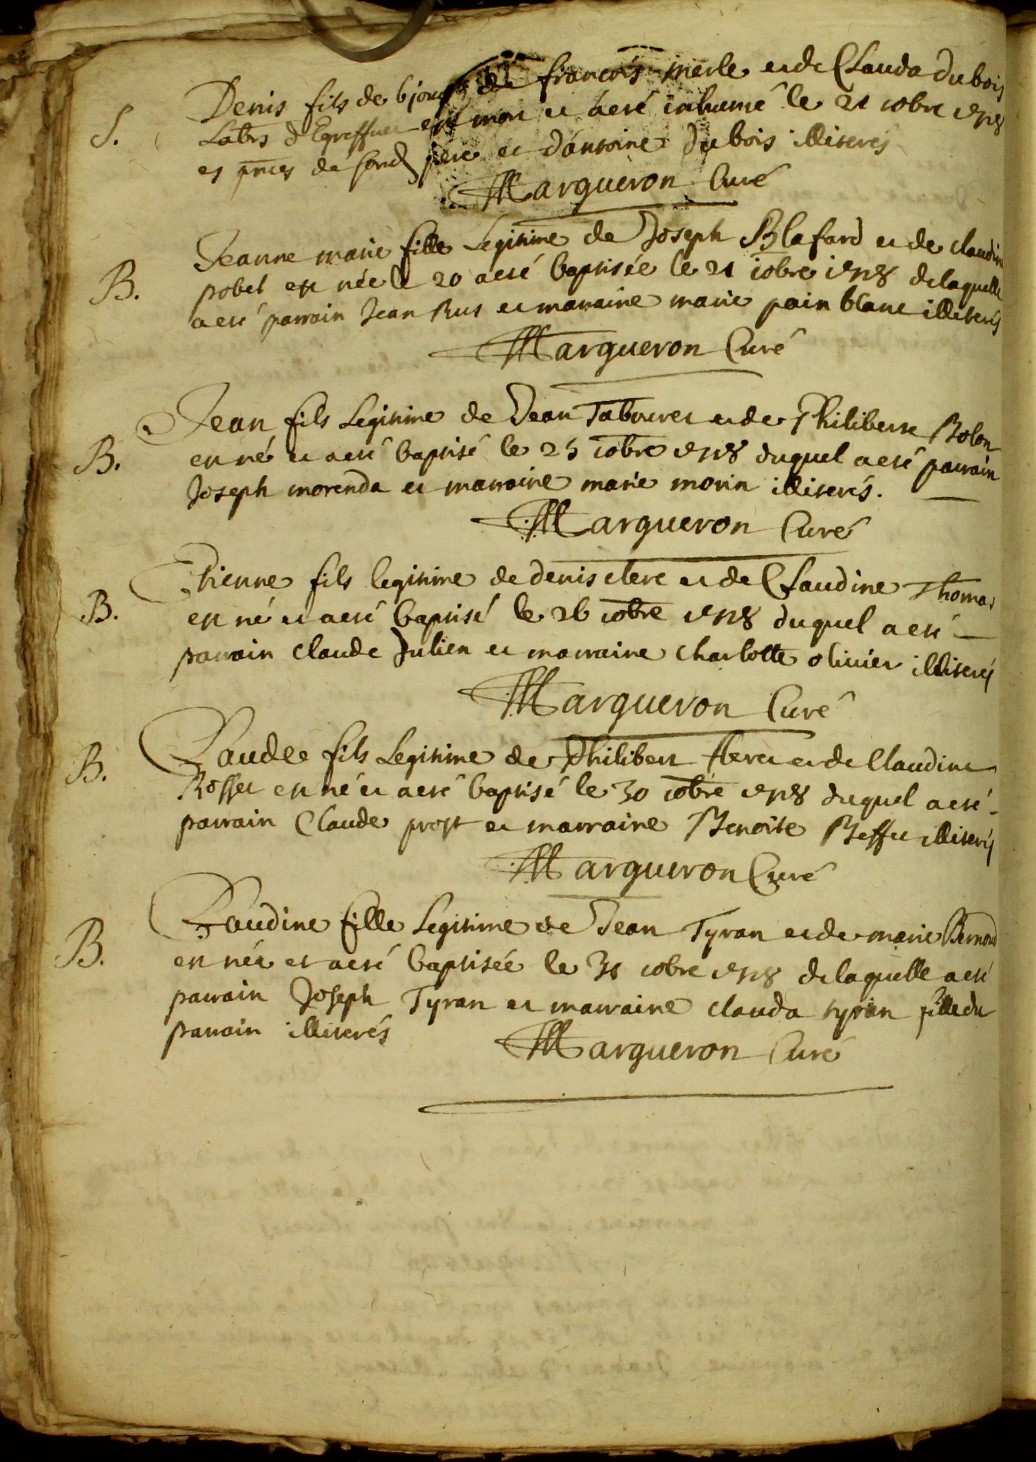 S. Denis fils de 6 jours de francois merle et de Clauda dubois
Labrs d'Egreffeuil est mort et a eté inhumé le 21 10bre 1718
es pnces de sond père et d'antoine Dubois illiterés
Margueron Curé
B. Jeanne marie fille Legitime de Joseph Blafard et de claudine
pobet est née le 20 a eté baptisée le 21 10bre 1718 de laquelle
a eté parrain Jean Rus et marraine marie pain blanc illiterés
Margueron Curé
B. Jean fils Legitime de Jean Tabouret et de Philiberte Bolon
est né et a eté baptisé le 25 10bre 1718 duquel a eté parrain
Joseph morenda et marraine marie morin illiterés.
Margueron Curé
B. Etienne fils legitime de denis clerc et de Claudine Thomas
est né et a eté baptisé le 26 10bre 1718 duquel a eté
parrain claude Julien et marraine charlotte olivier illiterés
Margueron Curé
B. Claude fils Legitime de Philibert et de Claudine
Rosset est né et a eté baptisé le 30 10bre 1718 duquel a eté
parrain Claude prost et marraine Benoite Beffet illiterés
Margueron Curé
B. Claudine fille Legitime de Jean Tyran et de marie Bernard
est née et a eté baptisée le 31 10bre 1718 de laquelle a eté
parrain Joseph Tyran et marraine clauda tyran fille du
parrain illiterés
Margueron Curé